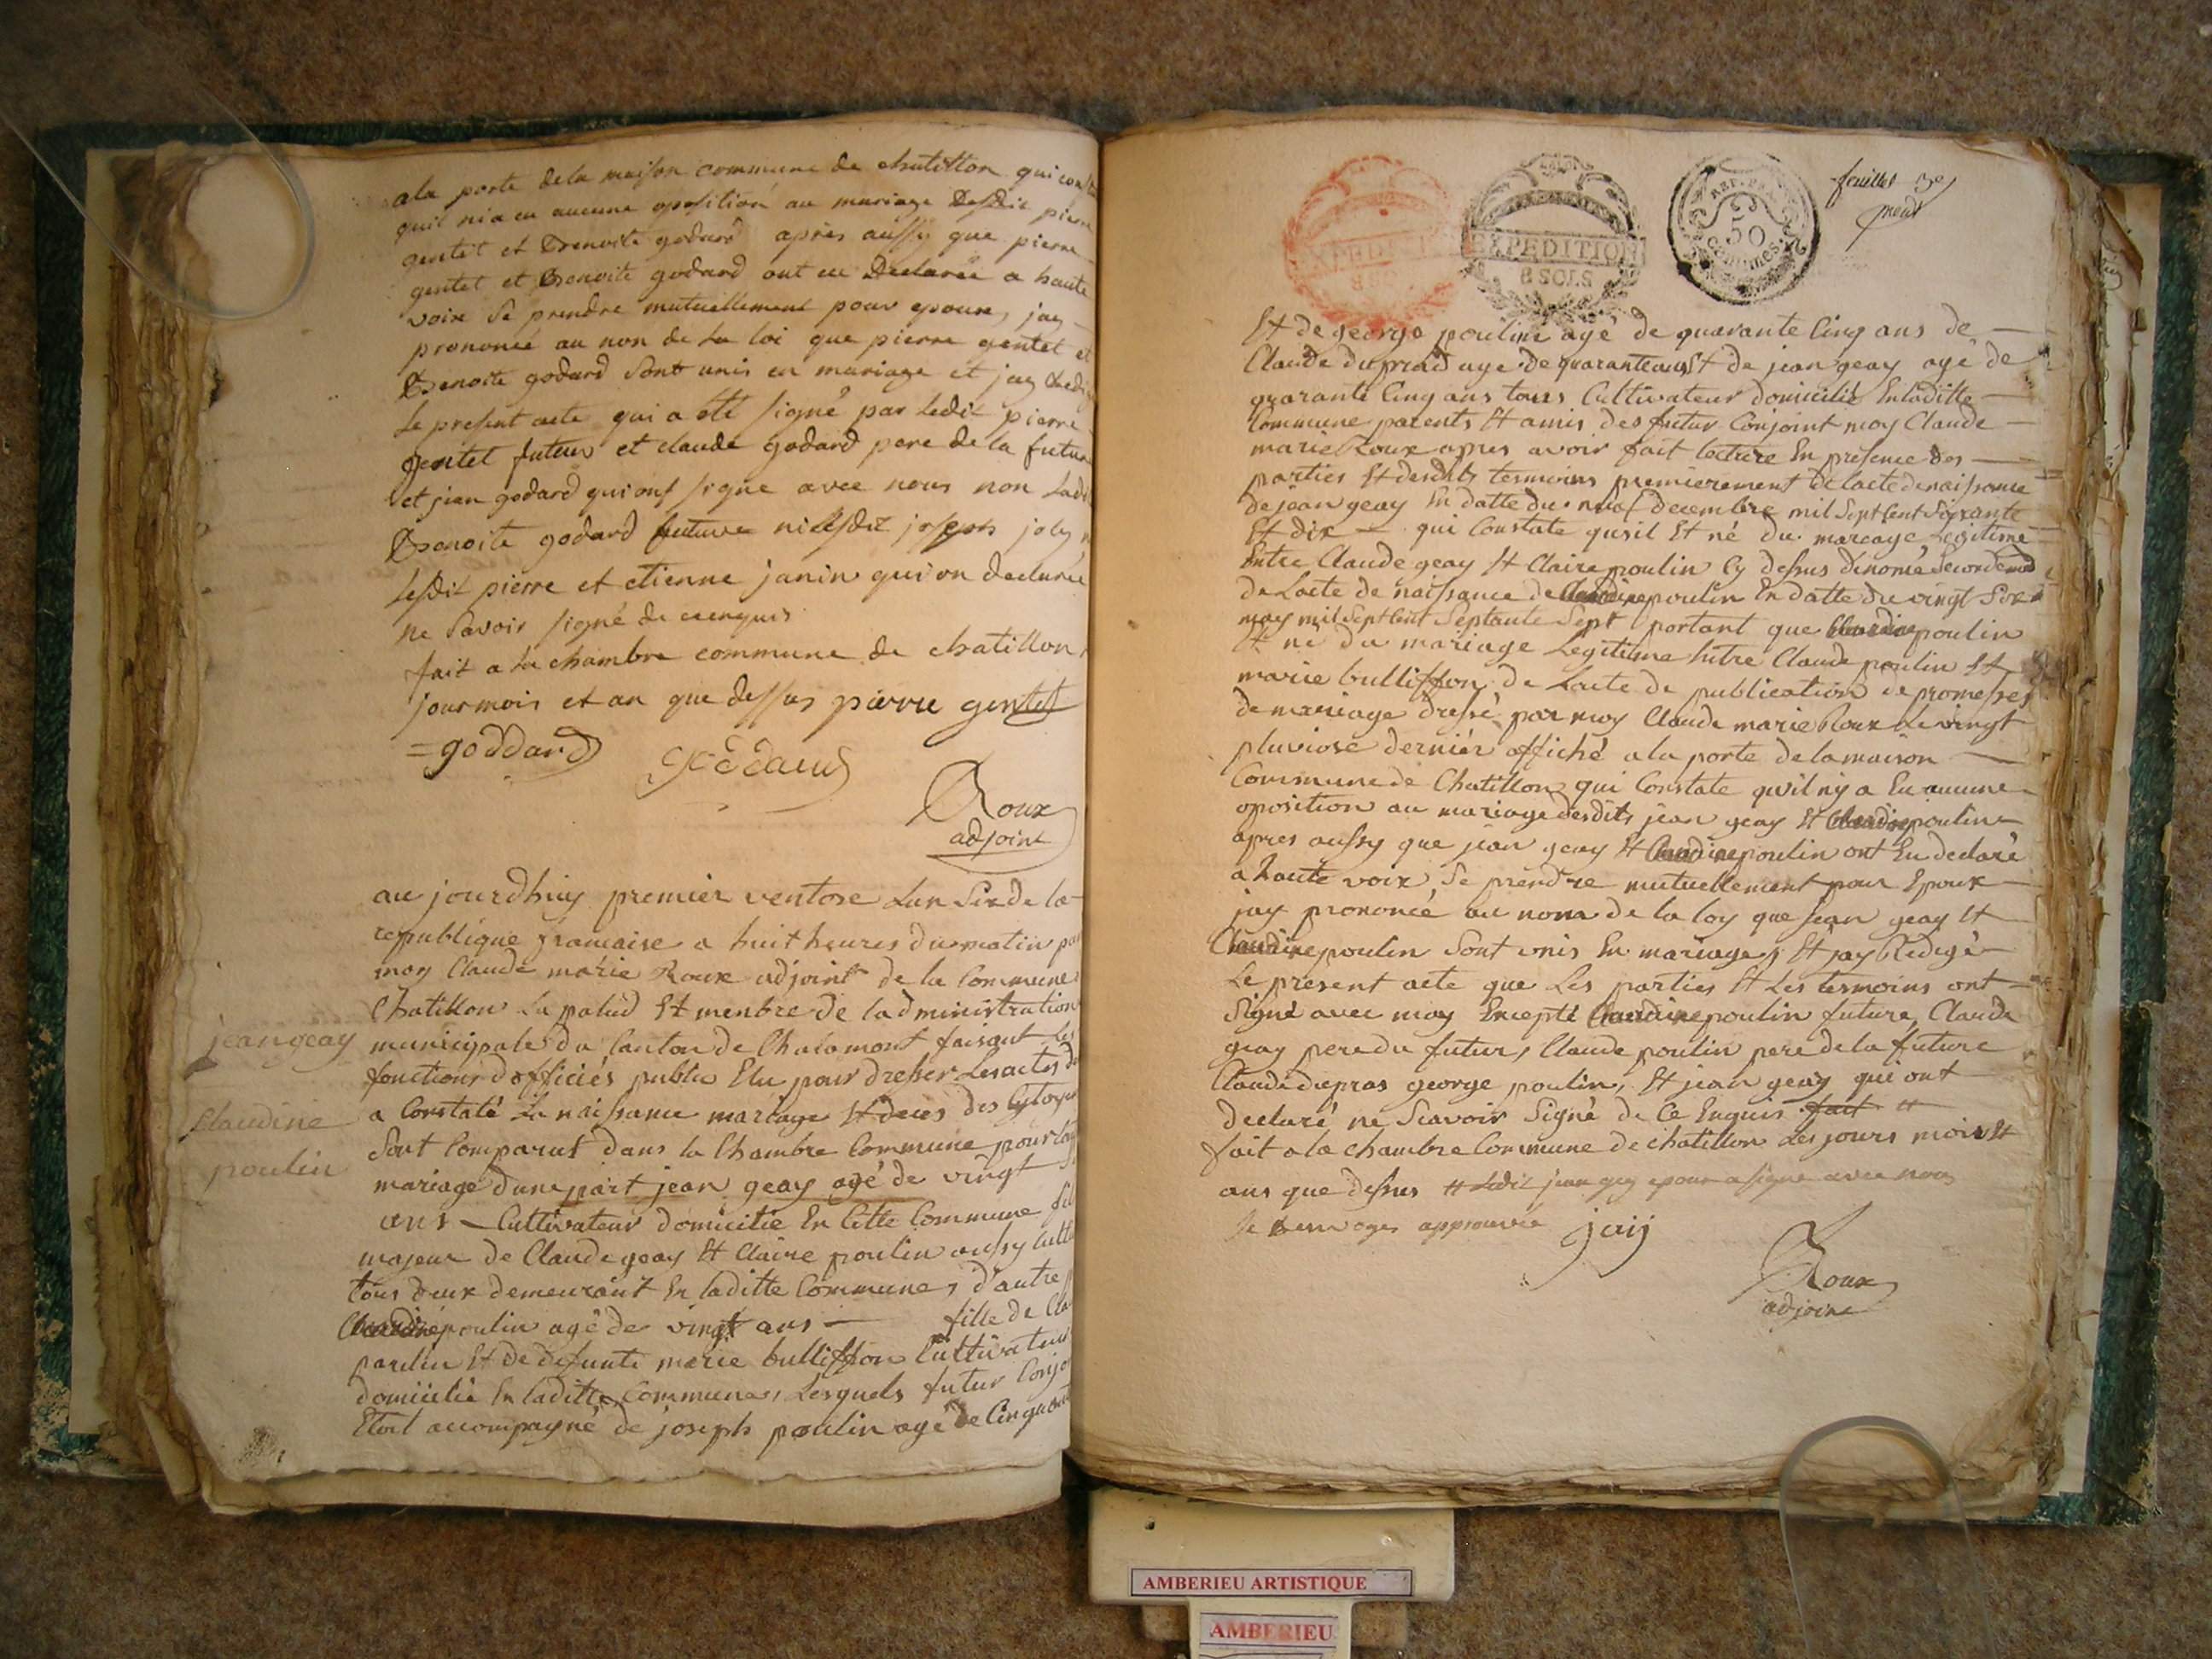 ala porte dela maison commune de chatillon qui const
quil nia eu aucune oposition au mariage Desdit pierre
gentet et Benoite godard après aussy que pierre
gentet et Benoite godard ont eu Declarée a haute
voix Se prendre mutuellement pour epoux, jay
prononcé au non de la loi que pierre gentet et
Benoite godard Sont unis en mariage et jay
Le present acte qui a été signé par Ledit pierre
gentet futeur et claude godard pere de la future
et jien godard qui ont signe avec nous non Lad
Benoite godard future ni Lesdit joseph joly
Lesdit pierre et etienne janin qui on declarée
ne Savoir signé de ce enquis
fait a la chambre commune de chatillon,
jour mois et an que dessus pierre gentet
=goddard
Roux
adjoint
au jourdhuy premier ventose Lan Six de la
republique francaise a huit heures du matin par
moy Claude marie Roux adjoint de la Commune
Chatillon La palud Et menbre de ladministration
jean geay
municipale du Canton de Chalamont faisant Les
fonctions dofficies public Elu pour dresser Les actes
Claudine
a Constaté La naissance mariage Et deces des Cytoyen
poulin
Sont Comparus dans la Chambre Commune pour
mariage dune part jean geay agé de vingt
ans Cultivateur domicilie En Cette Commune fil
majeur de Claude geay Et Claire poulin aussy Cult
tous deux demeurant En laditte Commune, d'autre
Claudine poulin agé de vingt ans fille de Cla
poulin Et de defunte marie bullisson Cultivateur
domicilié En laditte Commune, Lesquels futur Conjo
Etoit accompagné de joseph poulin agé de Cinquant
feuillet 3e
EXPEDITION
8 SOLS
50
Centimes.
Et de george poulin agé de quarante Cinq ans de
Claude duprad age de quarante ans Et de jean geay agé de
quarante Cinq ans tous Cultivateur domicilié En laditte
Commune parents Et amis des futur Conjoint moy Claude
marie Roux apres avoir fait lecture En presence des
parties Et desdits temoins premierement de lacte de naissance
de jean geay En datte du neuf decembre mil Sept Cent Soixante
Et dix qui Constate qusil Et né du mareage Legitime
Entre Claude geay Et Claire poulin Cy dessus dénomé Secondement
de Lacte de naissance de Claudine poulin En datte du vingt Six
may mil Sept Cent Septante Sept portant que Claudine poulin
Et né du mariage Legitime Entre Claude poulin Et
marie bullisson, de Lacte de publication de promesses
de mariage dressé par moy Claude marie Roux Le vingt
pluviose dernier affiché a la porte de la maison
Commune de Chatillon qui Constate qu'il ny a Eu aucune
oposition au mariage desdits jean geay Et Claudine poulin
apres aussy que jean geay Et Claudine poulin ont Eu declaré
a haute voix, Se prendre mutuellement pour Epoux
jay prononcé au nom de la loy que jean geay Et
Claudine poulin Sont unis En mariage, Et jay Redigé
Le present acte que Les parties Et Les temoins ont
Signé avec moy Excepté Claudine poulin future, Claude
geay pere du futur, Claude poulin pere de la future
Claude dupras george poulin, Et jean geay qui ont
declaré ne Scavoir Signé de Ce Enquis fait #
fait a la chambre Commune de chatillon Les jours mois Et
ans que dessus # Ledit jean gay epoux a signe avec nous
Le renvoyes approuvée
jaij
Roux
adjoint
AMBERIEU ARTISTIQUE
AMBERIEU